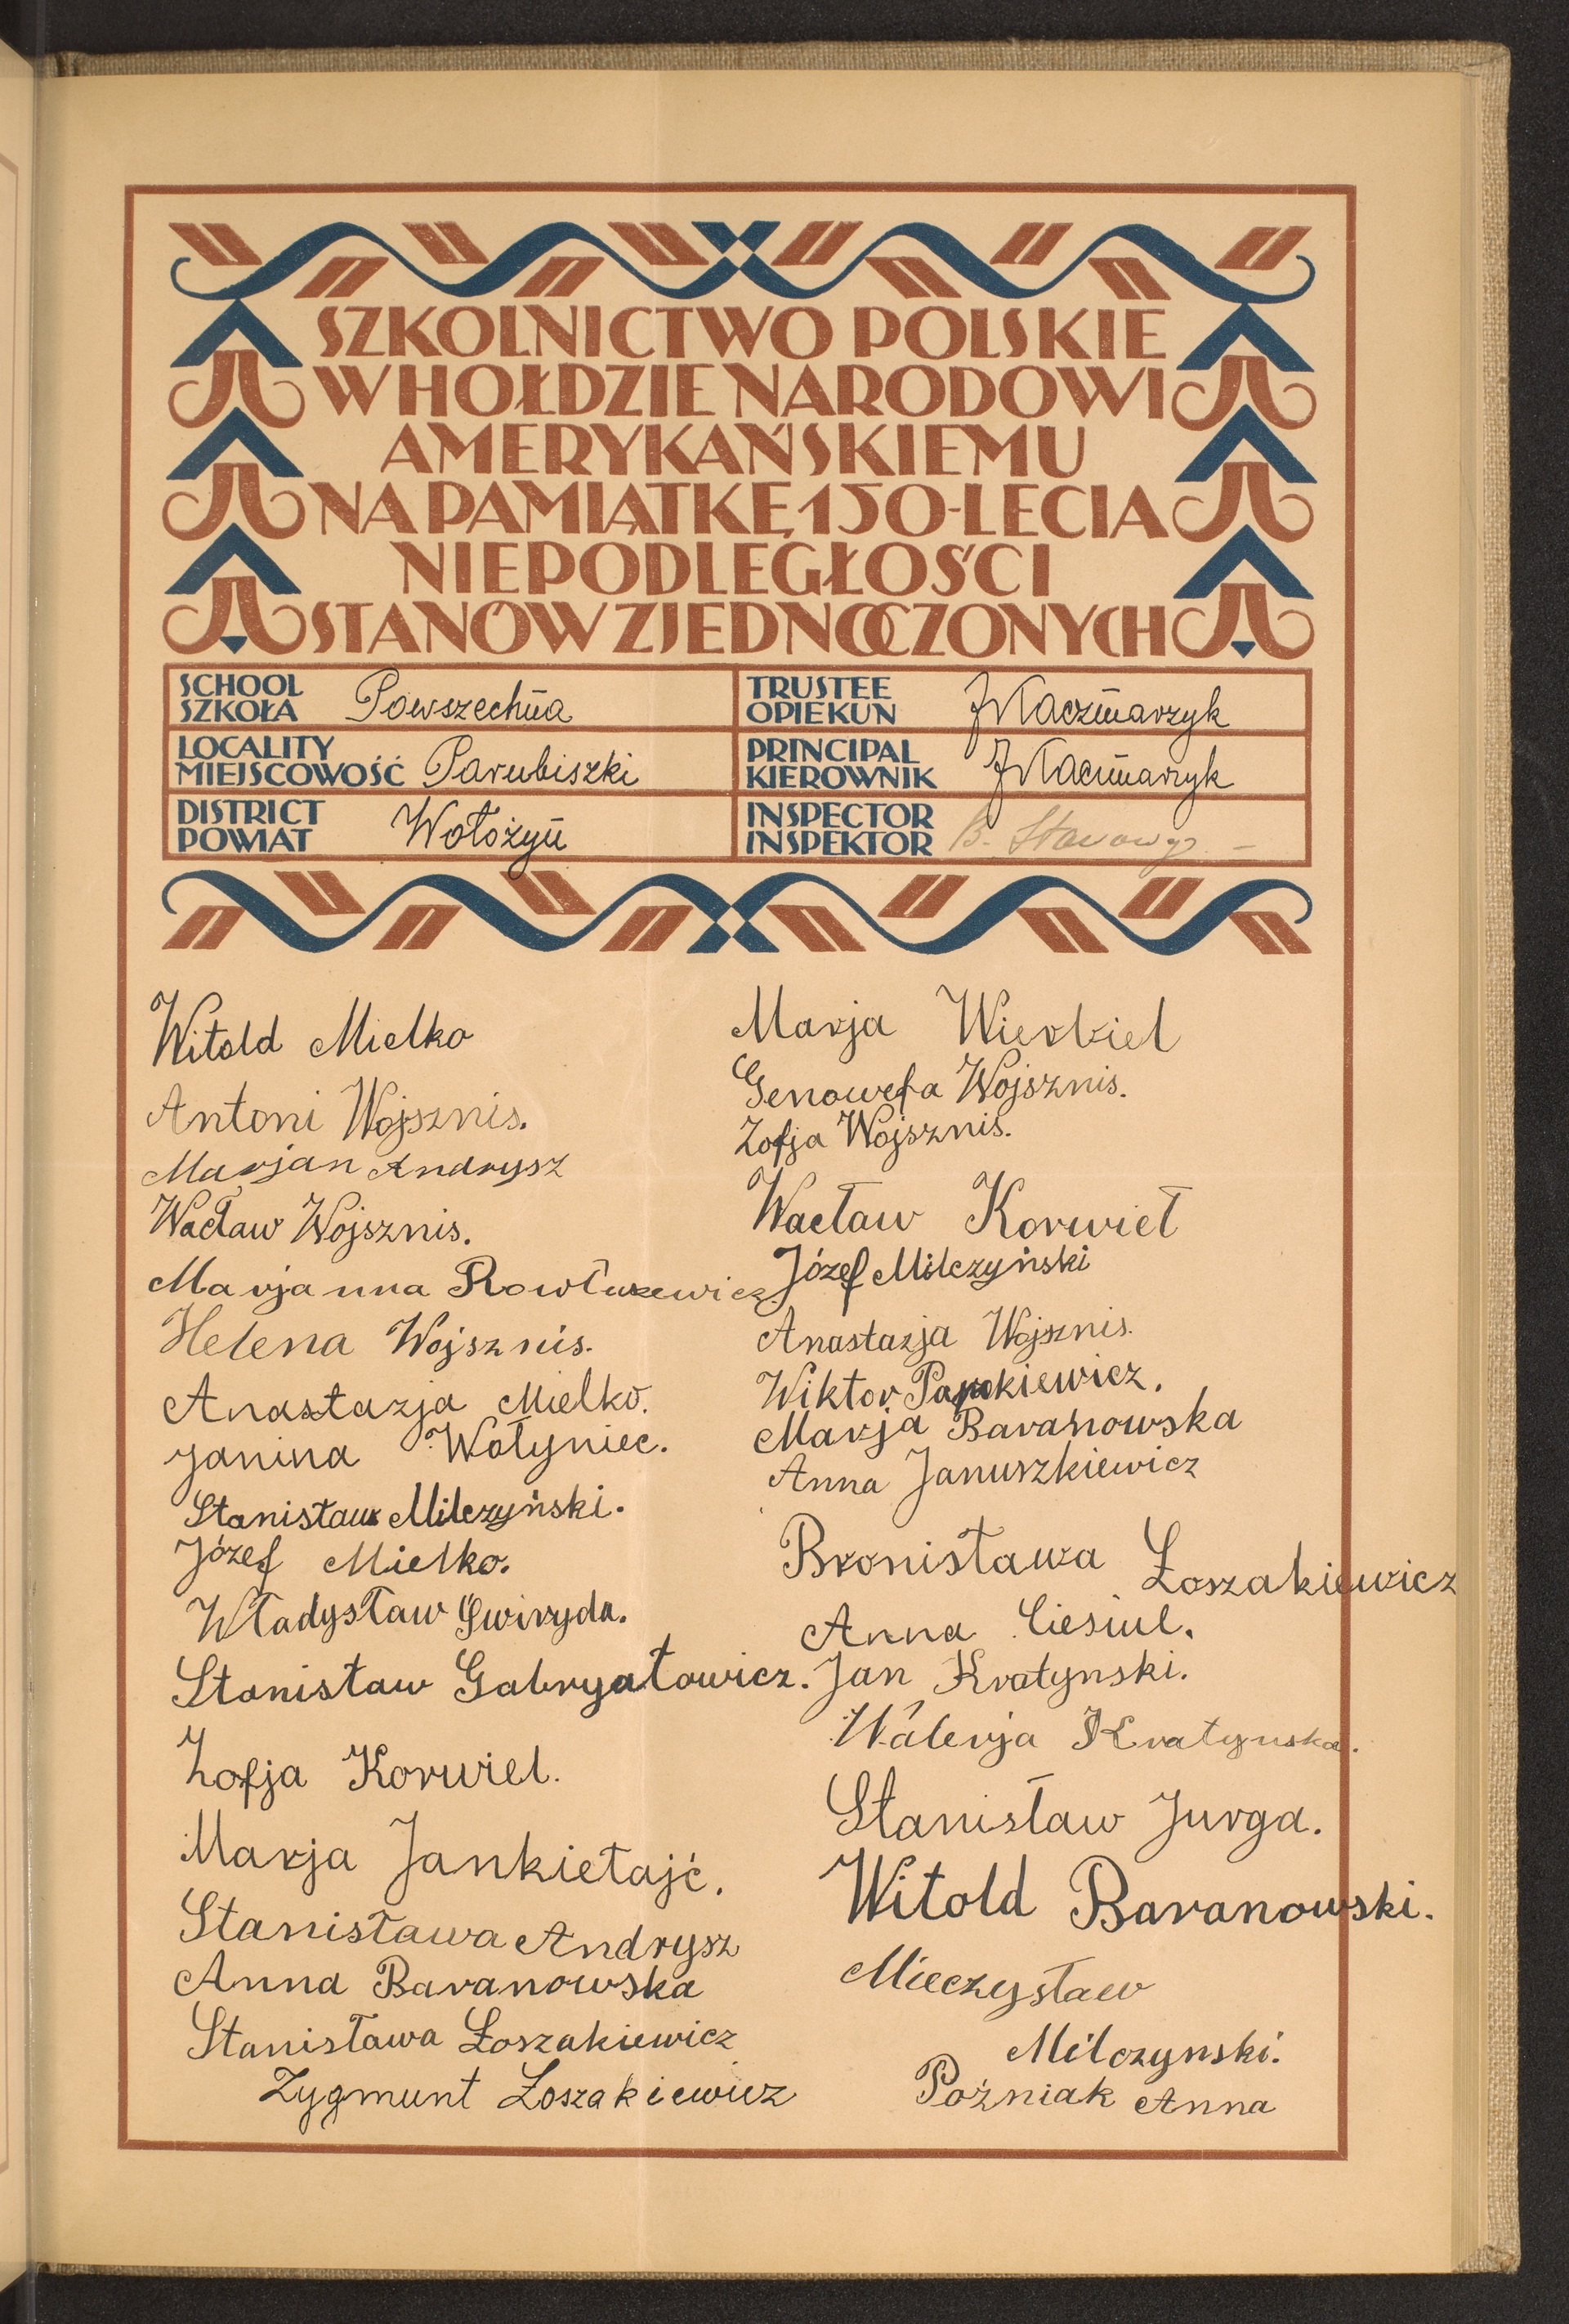 SZKOLNICTWO POLSKIE
W HOŁDZIE NARODOWI
AMERYKAŃSKIEMU
NA PAMIĄTKĘ 150-LECIA
NIEPODLEGŁOŚCI
STANÓW ZJEDNOCZONYCH
SCHOOL
SZKOŁA Powszechna
TRUSTEE
OPIEKUN J Kaczmarzyk
LOCALITY
MIEJSCOWOŚĆ Parubiszki
PRINCIPAL
KIEROWNIK J Kaczmarzyk
DISTRICT
POWIAT Wołożyn
INSPECTOR
INSPEKTOR B.
Witold Mielko
Antoni Wojsznis.
Marjan Andrysz
Wacław Wojsznis.
Marjanna
Helena Wojsznis.
Anastazja Mielko.
Janina Wołyniec.
Stanisław Milczyński.
Józef Mielko.
Władysław Gwiryda.
Stanisław Gabryałowicz.
Zofja Korwiel.
Marja Jankietajć.
Stanisława Andrysz
Anna Baranowska
Stanisława Łoszakiewicz
Zygmunt Łoszakiewicz
Marja Wierkiel
Genowefa Wojsznis.
Zofja Wojsznis.
Wacław Korwieł
Józef Milczyński
Anastazja Wojsznis.
Wiktor
Marja Baranowska
Anna Januszkiewicz
Bronisława Łoszakiewicz
Anna Ciesiul.
Jan Kratynski.
Walerja Kratynska.
Stanisław Jurga.
Witold Baranowski.
Mieczysław
Milczynski.
Poźniak Anna